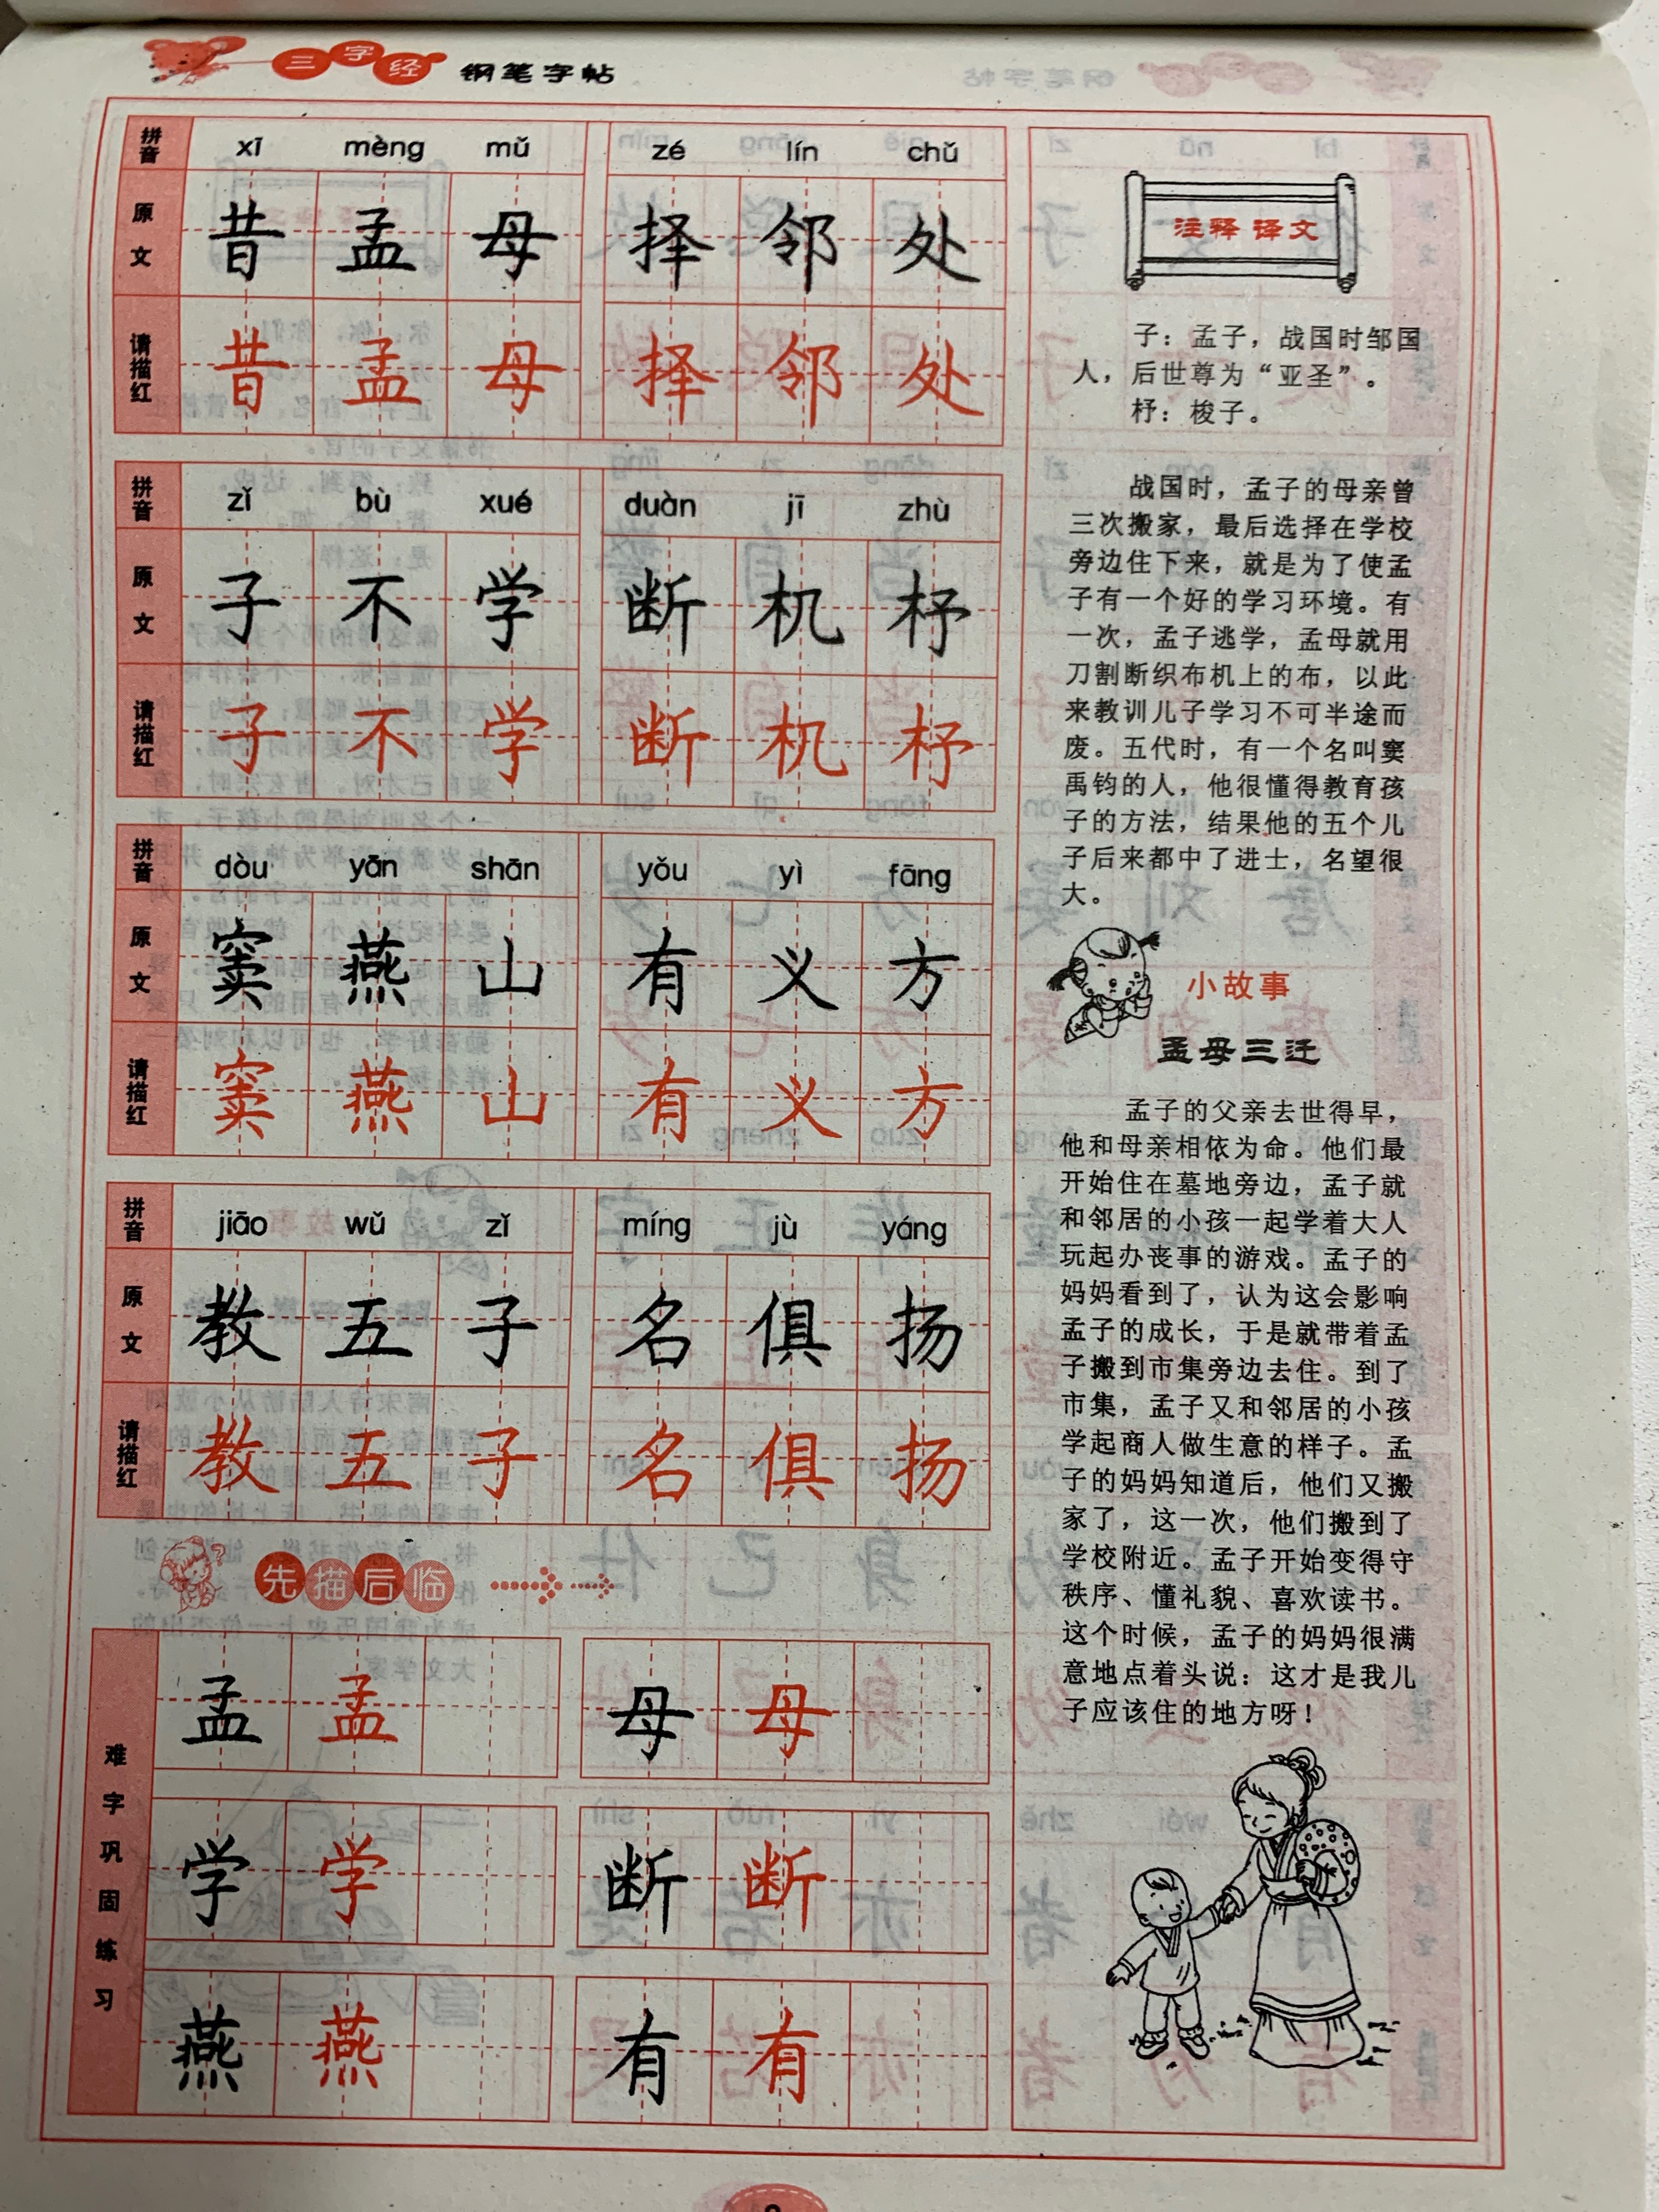 三字经 钢笔字帖
拼音 xī mèng mǔ zé lín chǔ
原文 昔 孟 母 择 邻 处
请描红 昔 孟 母 择 邻 处
拼音 zǐ bù xué duàn jī zhù
原文 子 不 学 断 机 杼
请描红 子 不 学 断 机 杼
拼音 dòu yān shān yǒu yì fāng
原文 窦 燕 山 有 义 方
请描红 窦 燕 山 有 义 方
拼音 jiāo wǔ zǐ míng jù yáng
原文 教 五 子 名 俱 扬
请描红 教 五 子 名 俱 扬
先描后临
难字巩固练习
孟 孟 母 母
学 学 断 断
燕 燕 有 有
注释 译文
子：孟子，战国时邹国
人，后世尊为“亚圣”。
杼：梭子。
战国时，孟子的母亲曾
三次搬家，最后选择在学校
旁边住下来，就是为了使孟
子有一个好的学习环境。有
一次，孟子逃学，孟母就用
刀割断织布机上的布，以此
来教训儿子学习不可半途而
废。五代时，有一个名叫窦
禹钧的人，他很懂得教育孩
子的方法，结果他的五个儿
子后来都中了进士，名望很
大。
小故事
孟母三迁
孟子的父亲去世得早，
他和母亲相依为命。他们最
开始住在墓地旁边，孟子就
和邻居的小孩一起学着大人
玩起办丧事的游戏。孟子的
妈妈看到了，认为这会影响
孟子的成长，于是就带着孟
子搬到市集旁边去住。到了
市集，孟子又和邻居的小孩
学起商人做生意的样子。孟
子的妈妈知道后，他们又搬
家了，这一次，他们搬到了
学校附近。孟子开始变得守
秩序、懂礼貌、喜欢读书。
这个时候，孟子的妈妈很满
意地点着头说：这才是我儿
子应该住的地方呀！